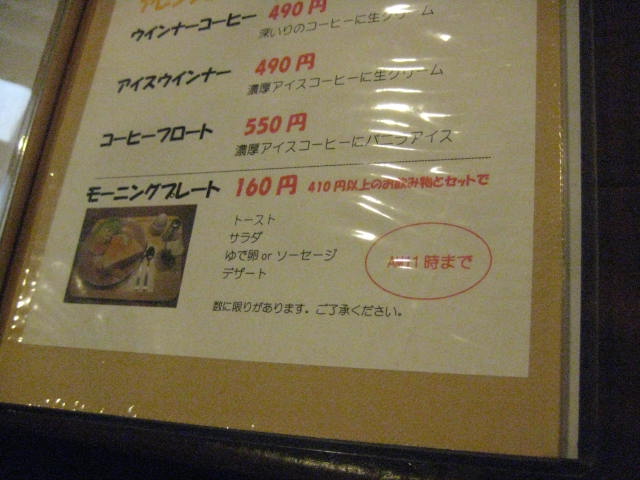 ウインナーコーヒー 490円
深いりのコーヒーに生クリーム
アイスウインナー 490円
濃厚アイスコーヒーに生クリーム
コーヒーフロート 550円
濃厚アイスコーヒーにバニラアイス
モーニングプレート 160円 410円以上のお飲み物とセットで
トースト
サラダ
ゆで卵 or ソーセージ
デザート
AM11時まで
数に限りがあります。ご了承ください。